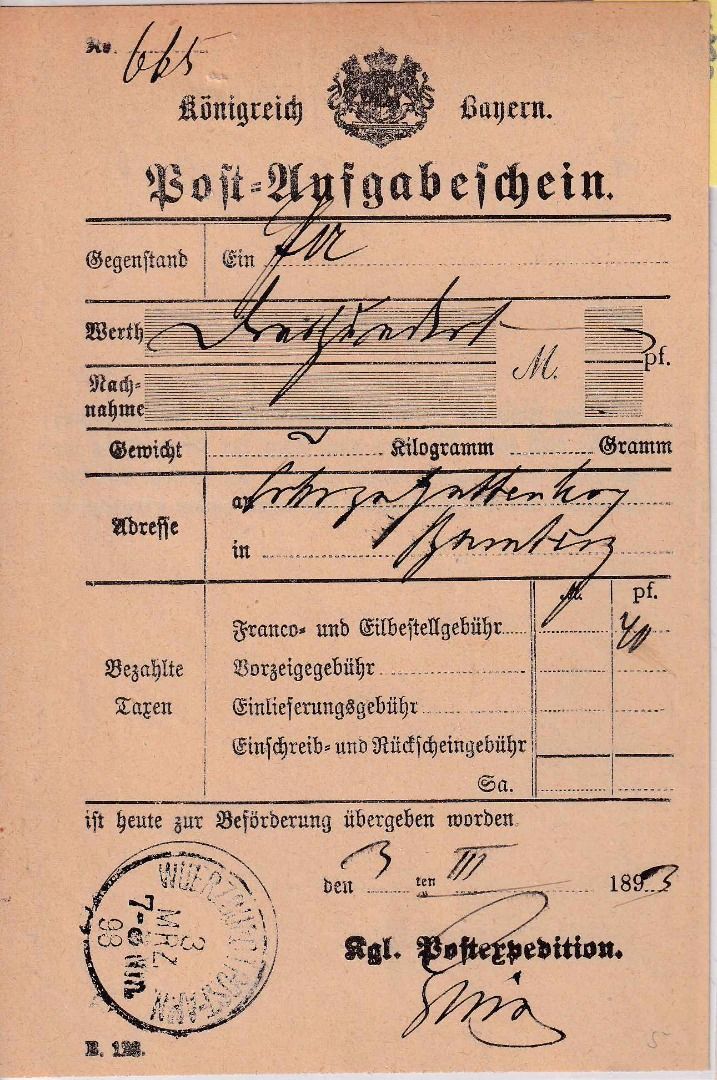 No. 665
Königreich Bayern.
Post-Aufgabeschein.
Gegenstand Ein
Werth Dreihundert M. pf.
Nach-
nahme
Gewicht Kilogramm Gramm
Adresse an
in Bamberg
M. pf.
Franco- und Eilbestellgebühr 40
Bezahlte Vorzeigegebühr
Taxen Einlieferungsgebühr
Einschreib- und Rückscheingebühr
Sa.
ist heute zur Beförderung übergeben worden
den 3 ten III 1893
Kgl. Postexpedition.
WUERZBURG
3
MRZ
7-8 Nm.
93